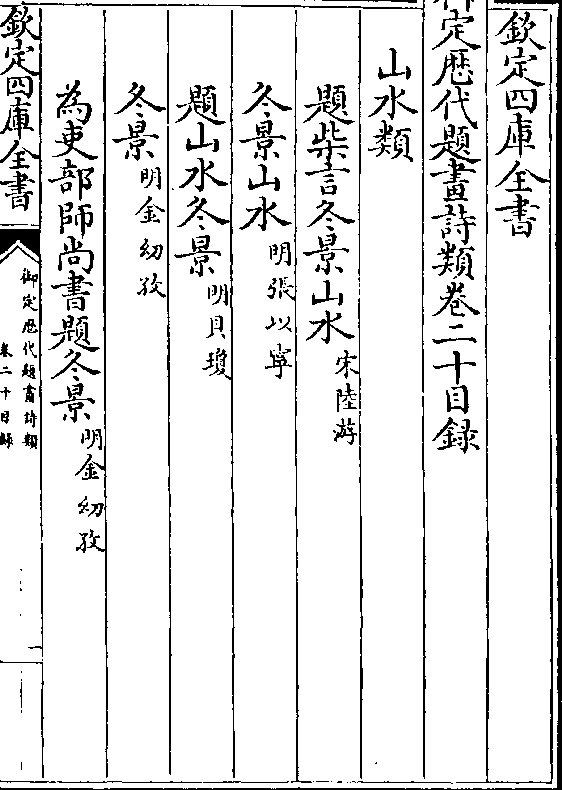 欽定四庫全書
御定歴代題畫詩類卷二十目録
山水類
題柴言冬景山水 宋陸游
冬景山水 明張以寧
題山水冬景 明貝瓊
冬景 明金幼孜
為吏部師尚書題冬景 明金幼孜
欽定四庫全書
御定歴代題畫詩類
卷二十目録
一